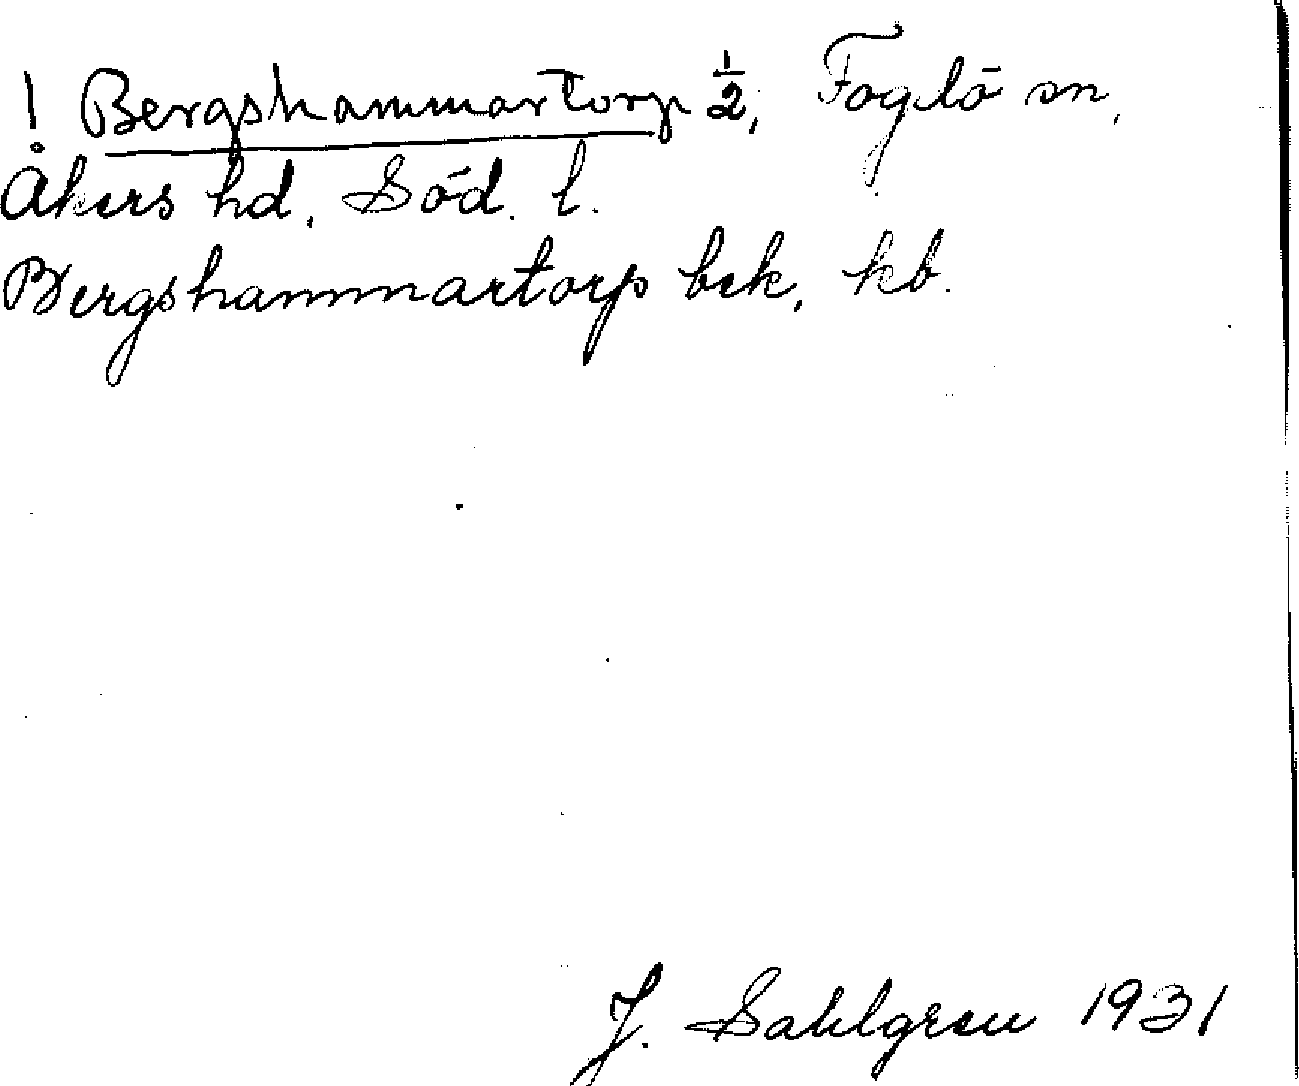 ! Bergshammartorp 1/2, Foglö sn,
Åkers hd, Söd. l.
Bergshammartorp bek, kb.
J. Sahlgren 1931